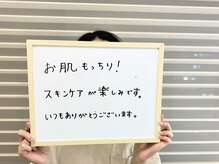 お肌もっちり！
スキンケアが楽しみです。
いつもありがとうございます。